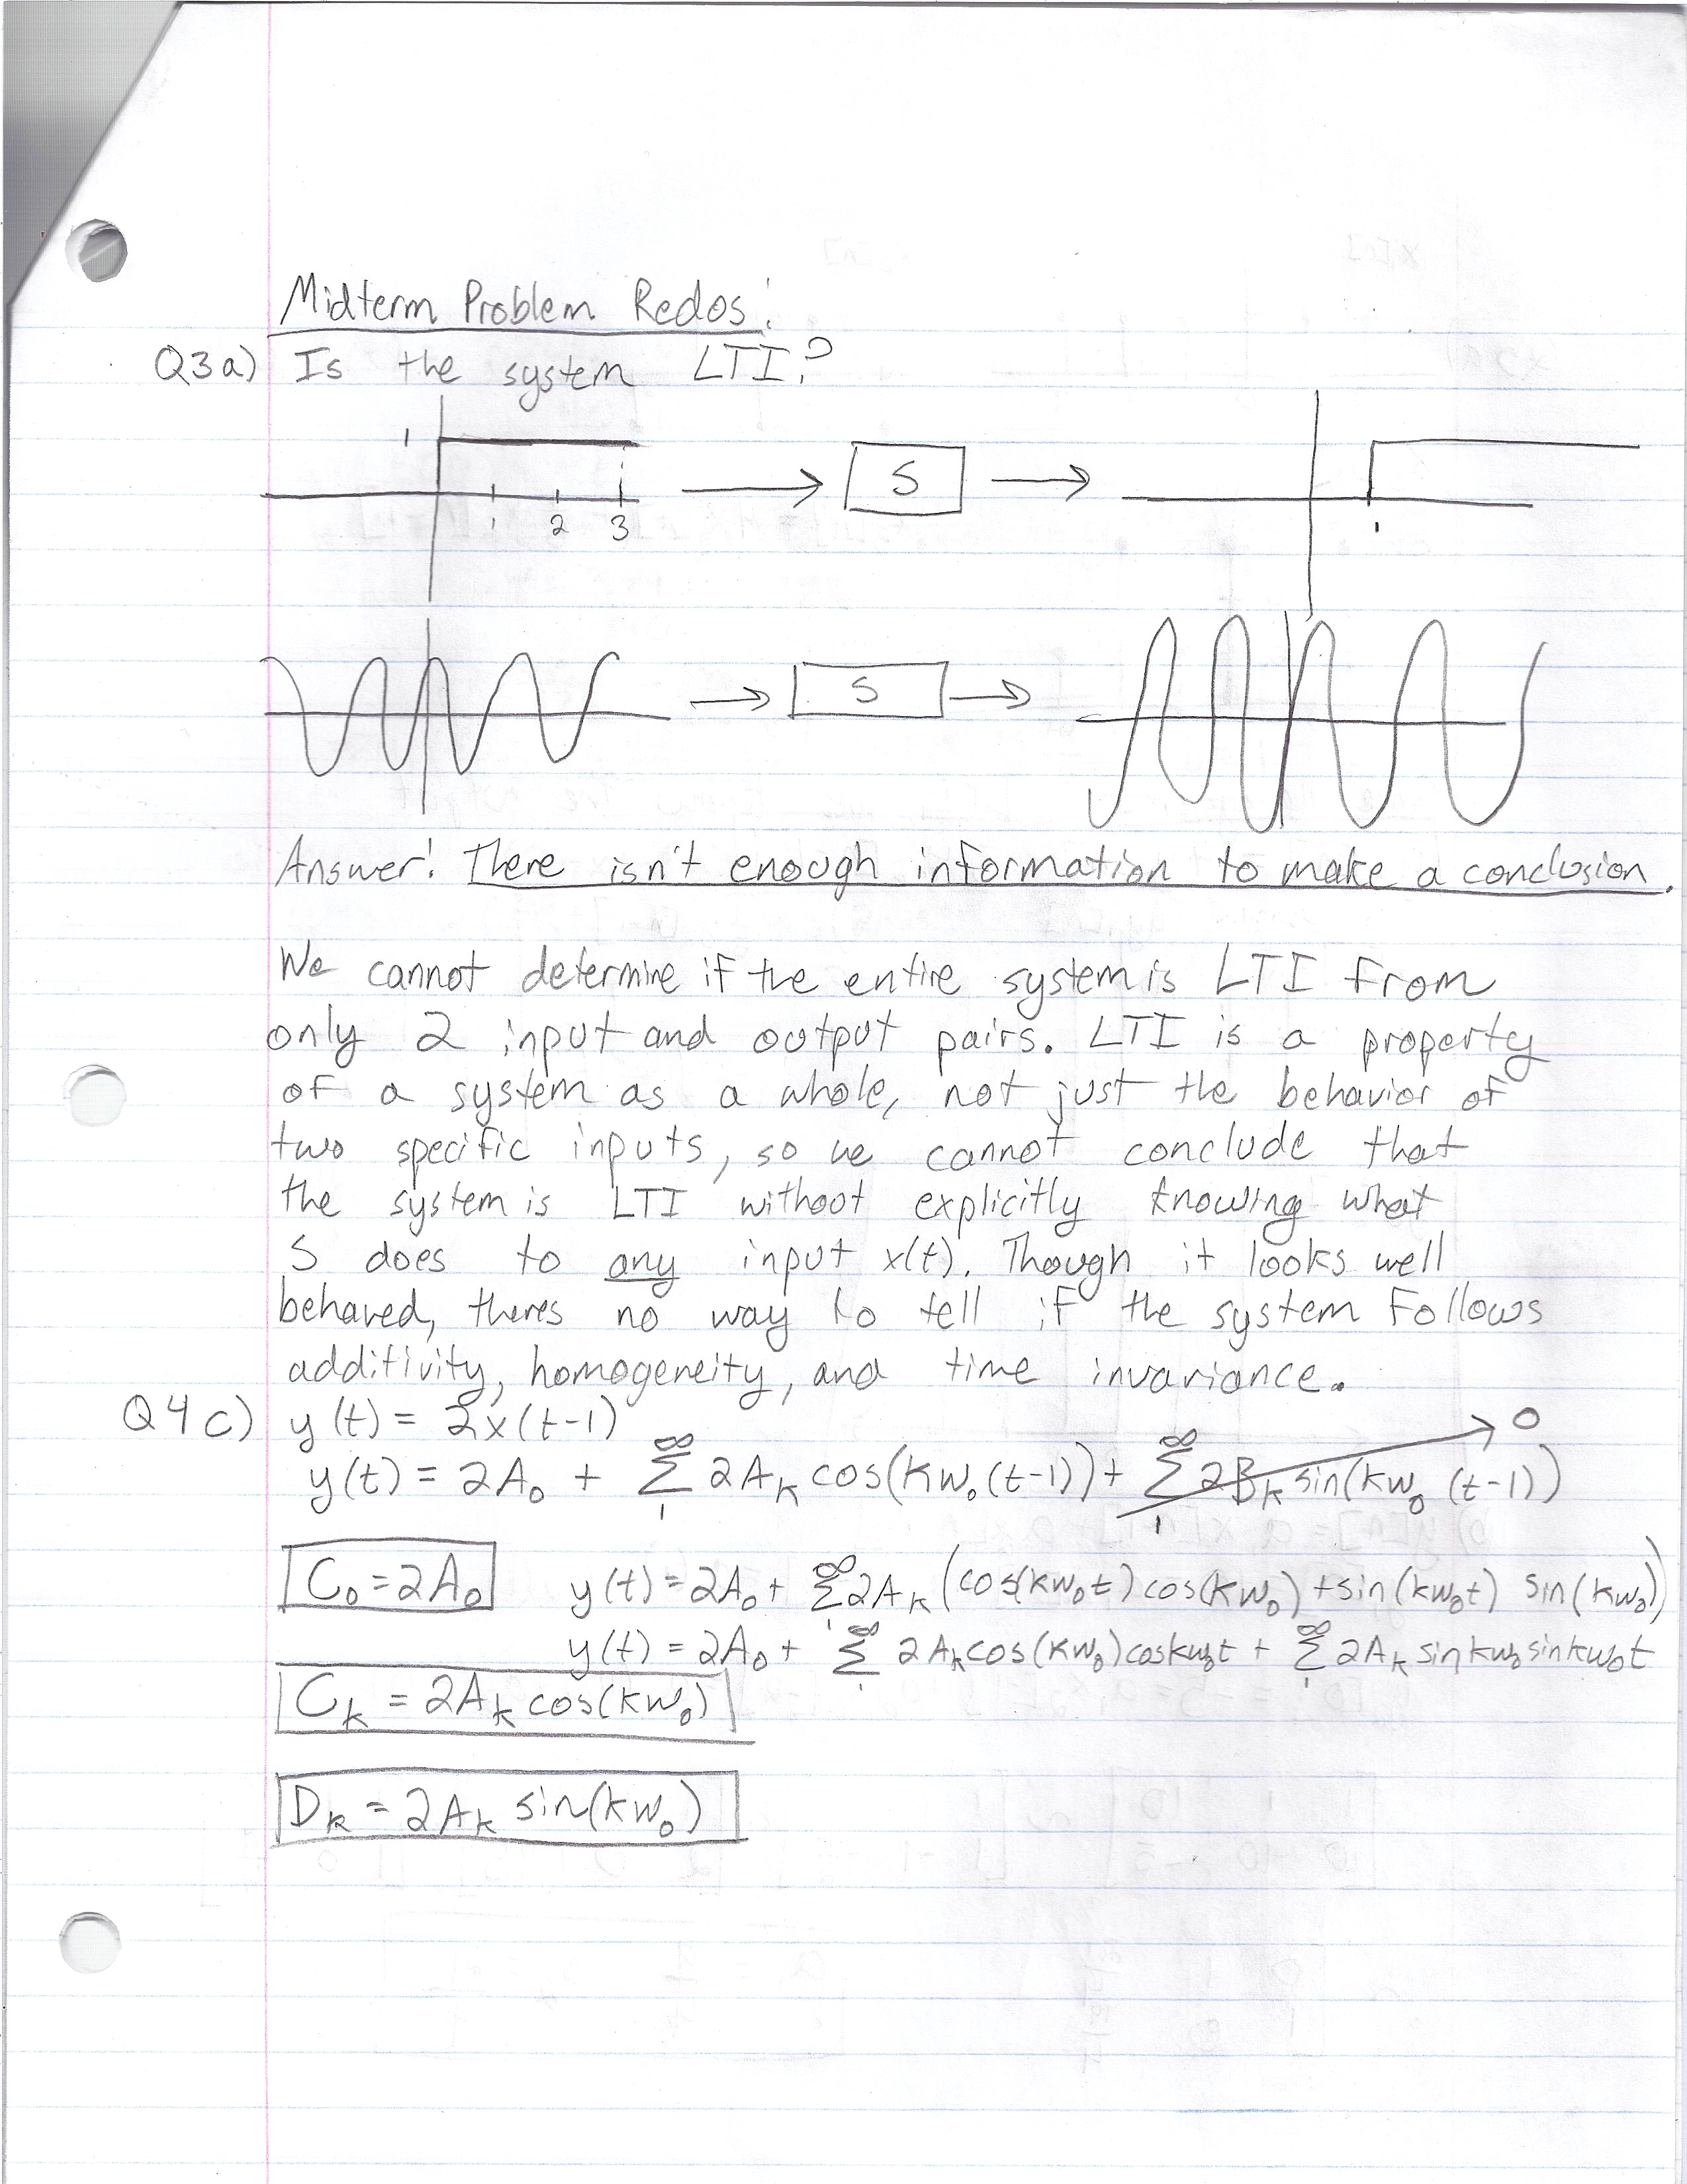 Midterm Problem Redos:
Q3a) Is the system LTI?
1
1 2 3
S
1
S
Answer: There isn't enough information to make a conclusion.
We cannot determine if the entire system is LTI from
only 2 input and output pairs. LTI is a property
of a system as a whole, not just the behavior of
two specific inputs, so we cannot conclude that
the system is LTI without explicitly knowing what
S does to any input x(t). Though it looks well
behaved, theres no way to tell if the system follows
additivity, homogeneity, and time invariance.
Q4c) y(t) = 2x(t-1)
y(t) = 2A₀ + ∞Σ1 2Aₖ cos(kω₀(t-1)) + ∞Σ1 2Bₖ sin(kω₀(t-1)) → 0
C₀ = 2A₀ y(t) = 2A₀ + ∞Σ1 2Aₖ(cos(kω₀t) cos(kω₀) + sin(kω₀t) sin(kω₀))
y(t) = 2A₀ + ∞Σ1 2Aₖcos(kω₀)coskω₀t + ∞Σ1 2Aₖ sinkω₀ sinkω₀t
Cₖ = 2Aₖ cos(kω₀)
Dₖ = 2Aₖ sin(kω₀)